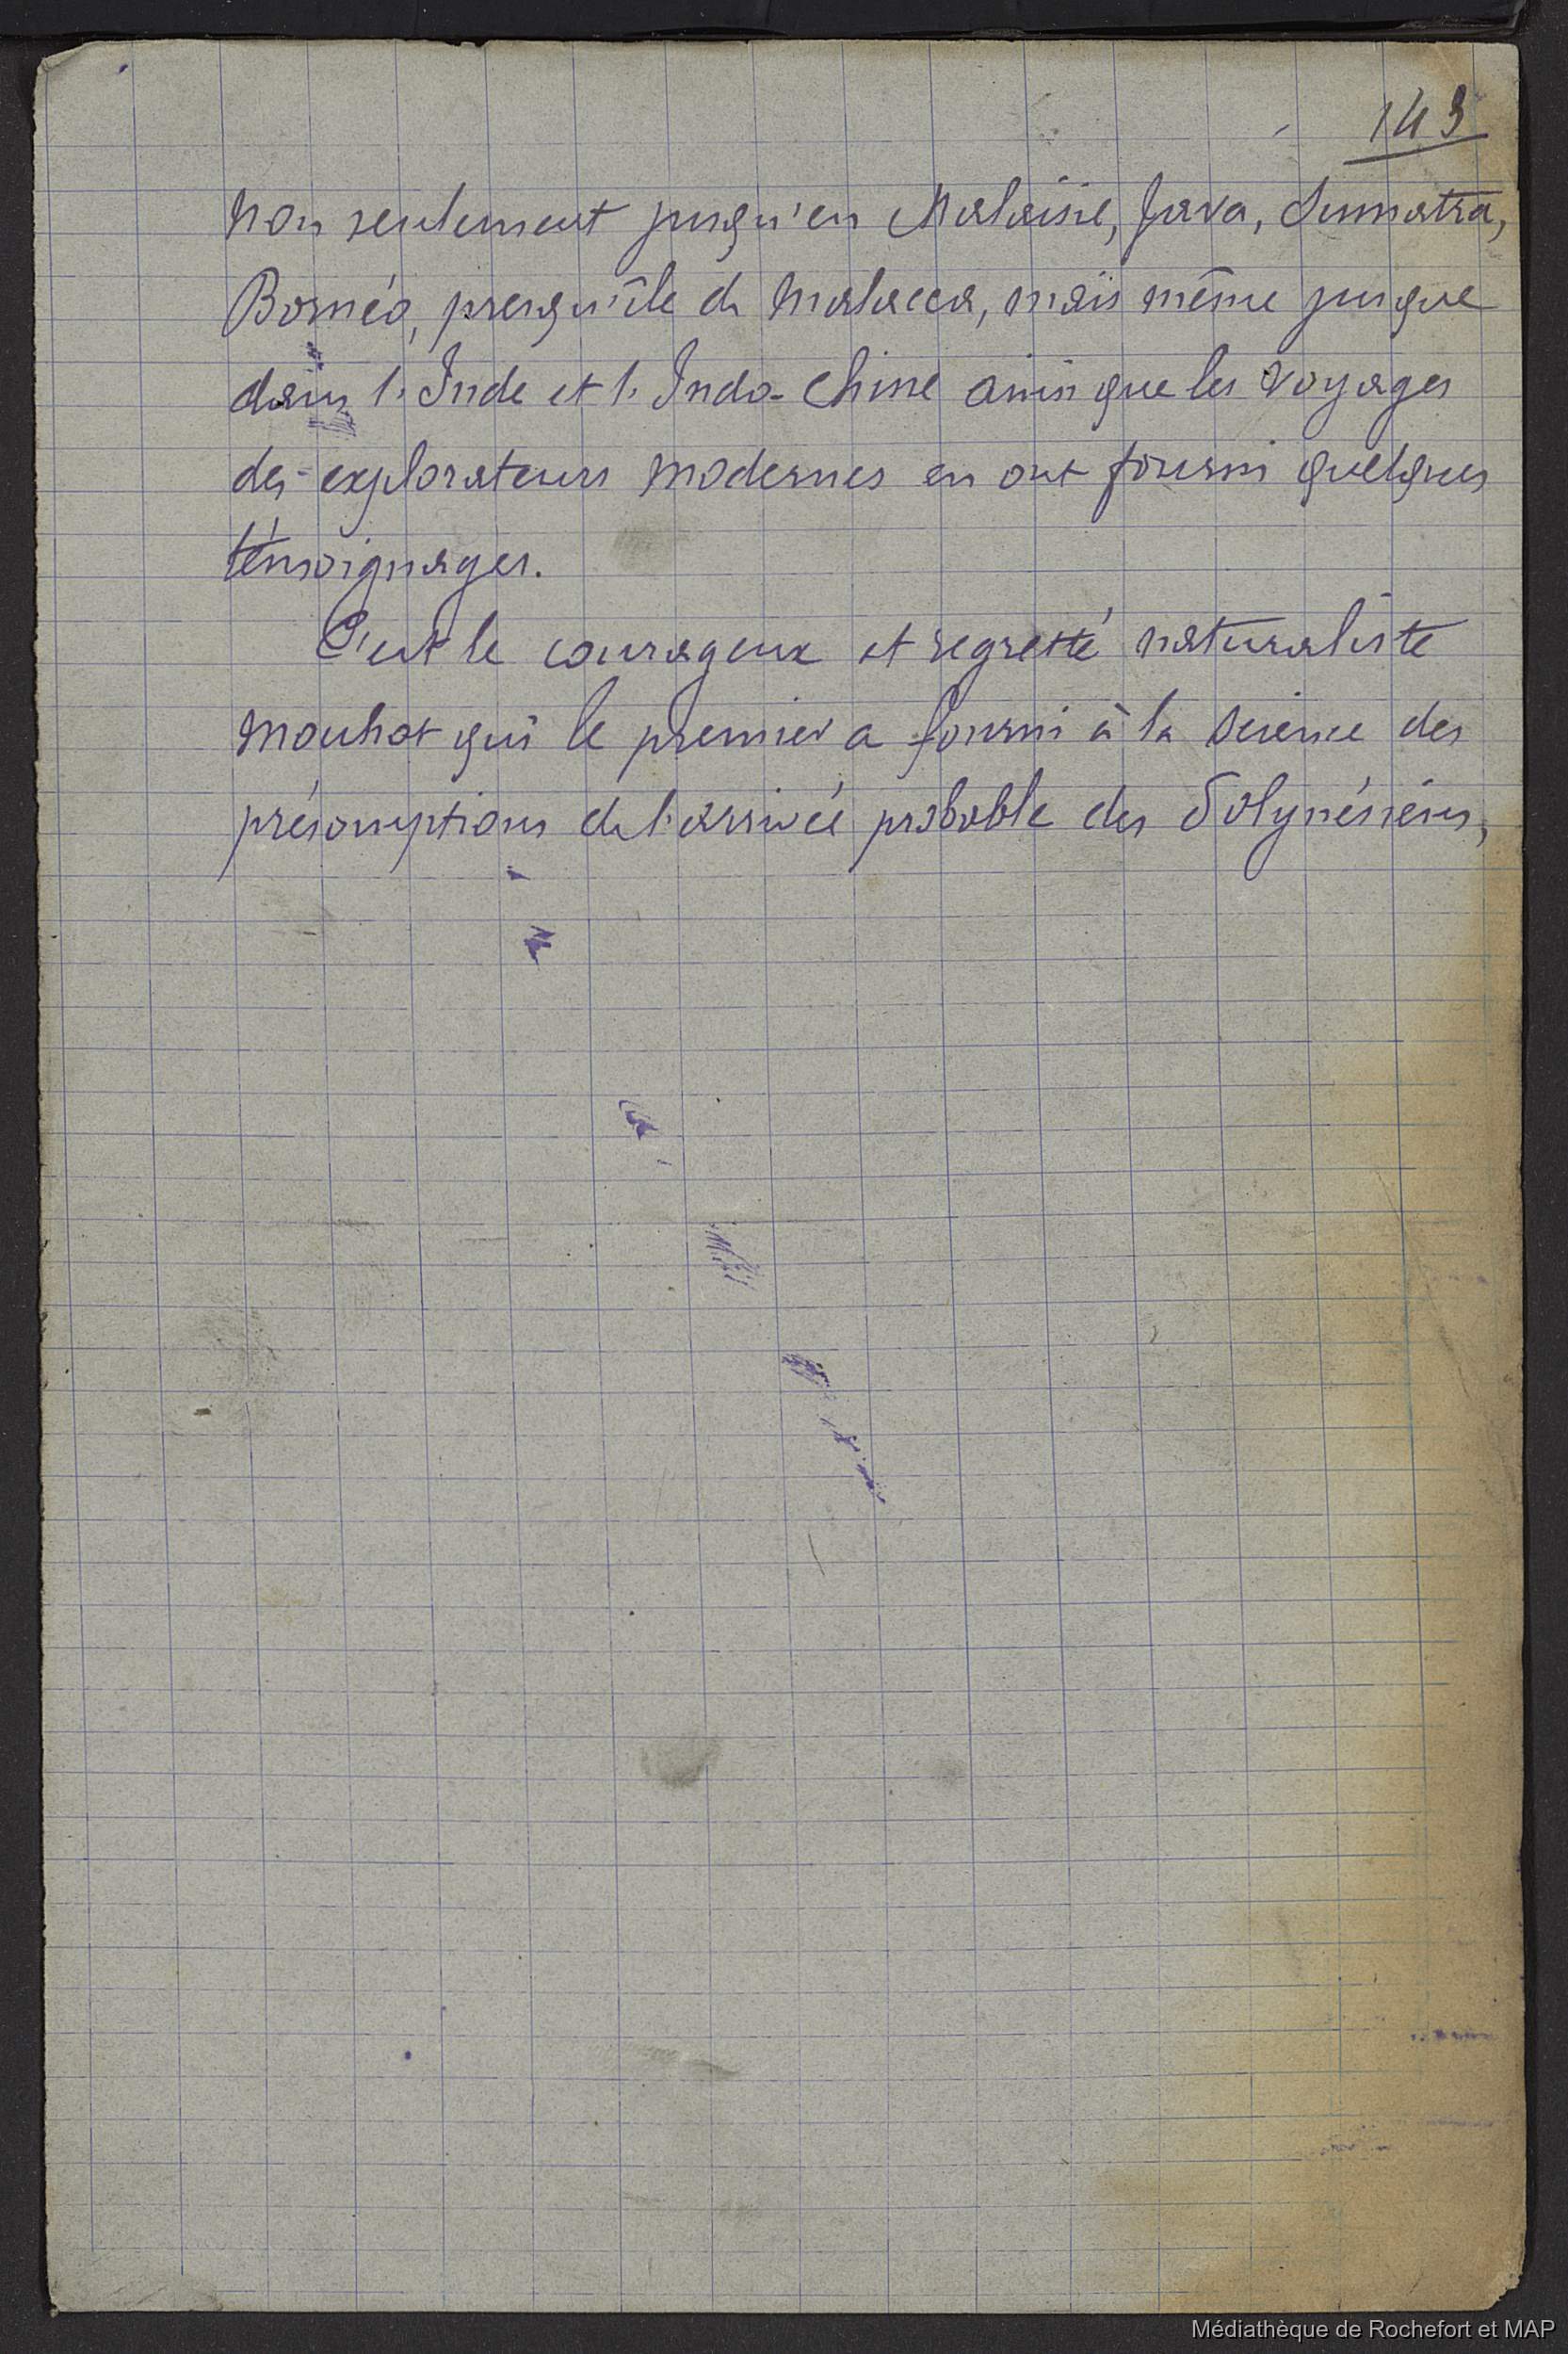 143
non seulement jusqu'en Malaisie, Java, Sumatra,
Bornéo, presqu'île de Malacca, mais même jusque
dans l'Inde et l'Indo-Chine ainsi que les voyages
des explorateurs modernes en ont fourni quelques
témoignages.
C'est le courageux et regretté naturaliste
Mouhot qui le premier a fourni à la science des
présomptions de l'arrivée probable des Polynésiens,
Médiathèque de Rochefort et MAP